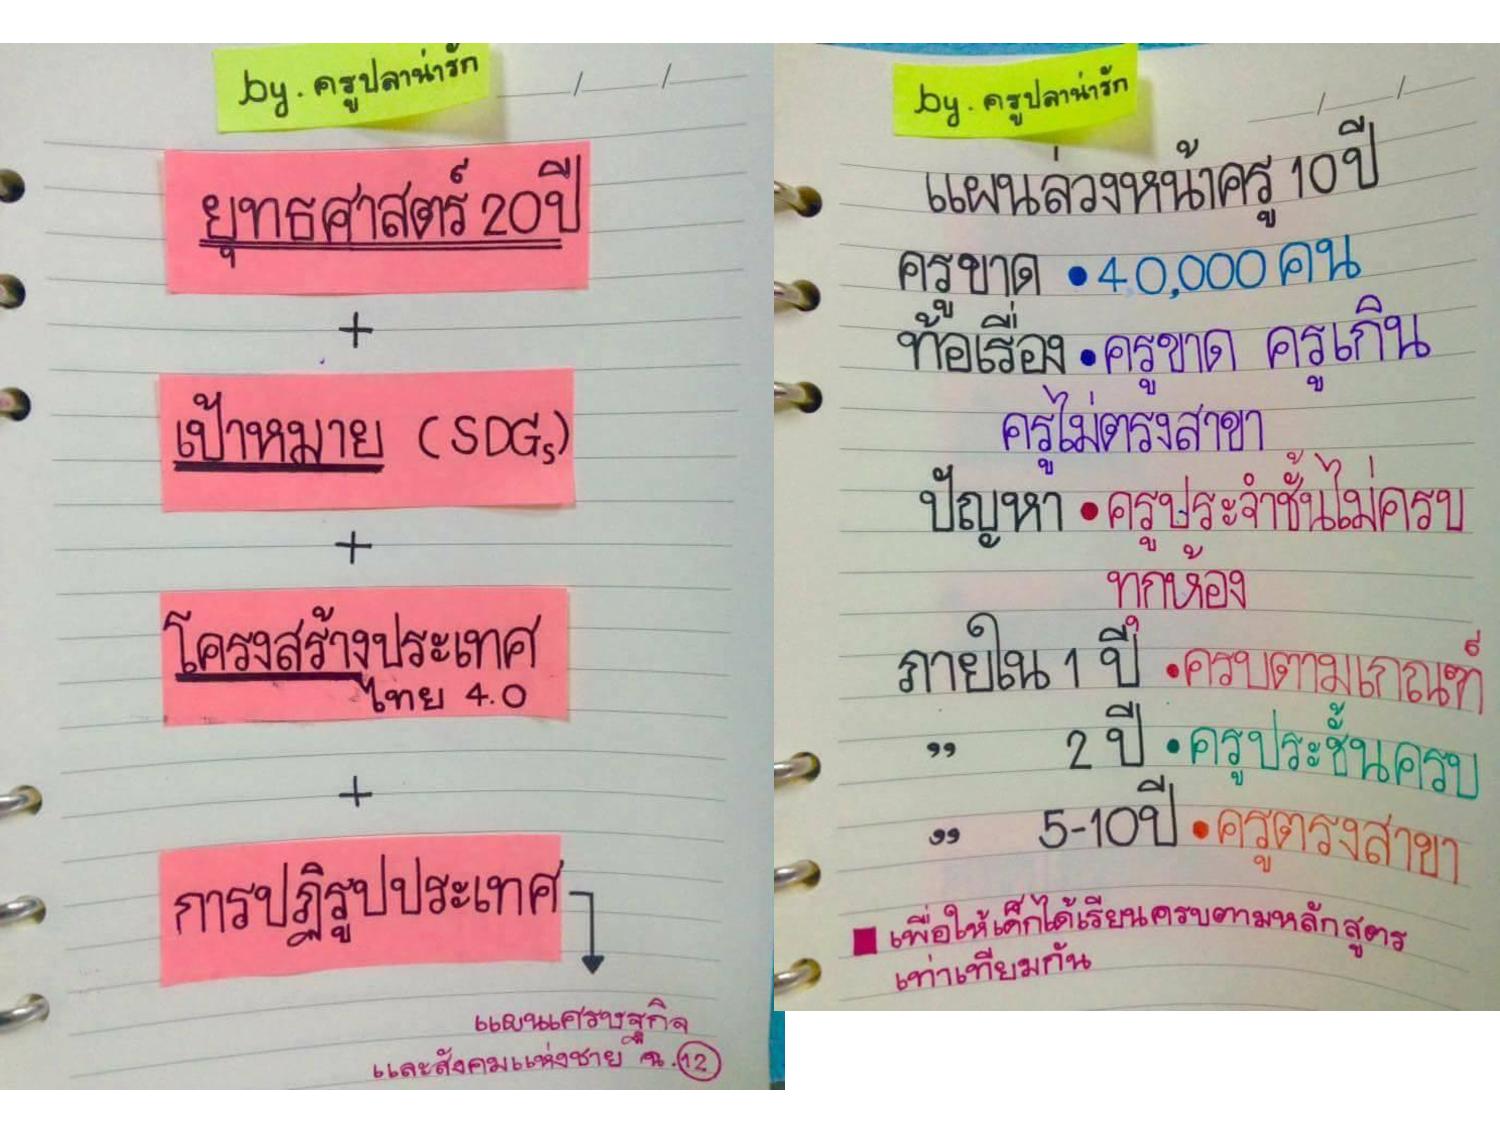 by. ครูปลาน่ารัก
ยุทธศาสตร์ 20ปี
+
เป้าหมาย (SDGs)
+
โครงสร้างประเทศ
ไทย 4.0
+
การปฏิรูปประเทศ
แผนเศรษฐกิจ
และสังคมแห่งชาย ฉ.12
by. ครูปลาน่ารัก
แผนล่วงหน้าครู 10ปี
ครูขาด • 40,000 คน
ท้อเรื่อง • ครูขาด ครูเกิน
ครูไม่ตรงสาขา
ปัญหา • ครูประจำชั้นไม่ครบ
ทุกห้อง
ภายใน 1 ปี • ครบตามเกณฑ์
,, 2 ปี • ครูประชั้นครบ
,, 5-10ปี • ครูตรงสาขา
■ เพื่อให้เด็กได้เรียนครบตามหลักสูตร
เท่าเทียมกัน